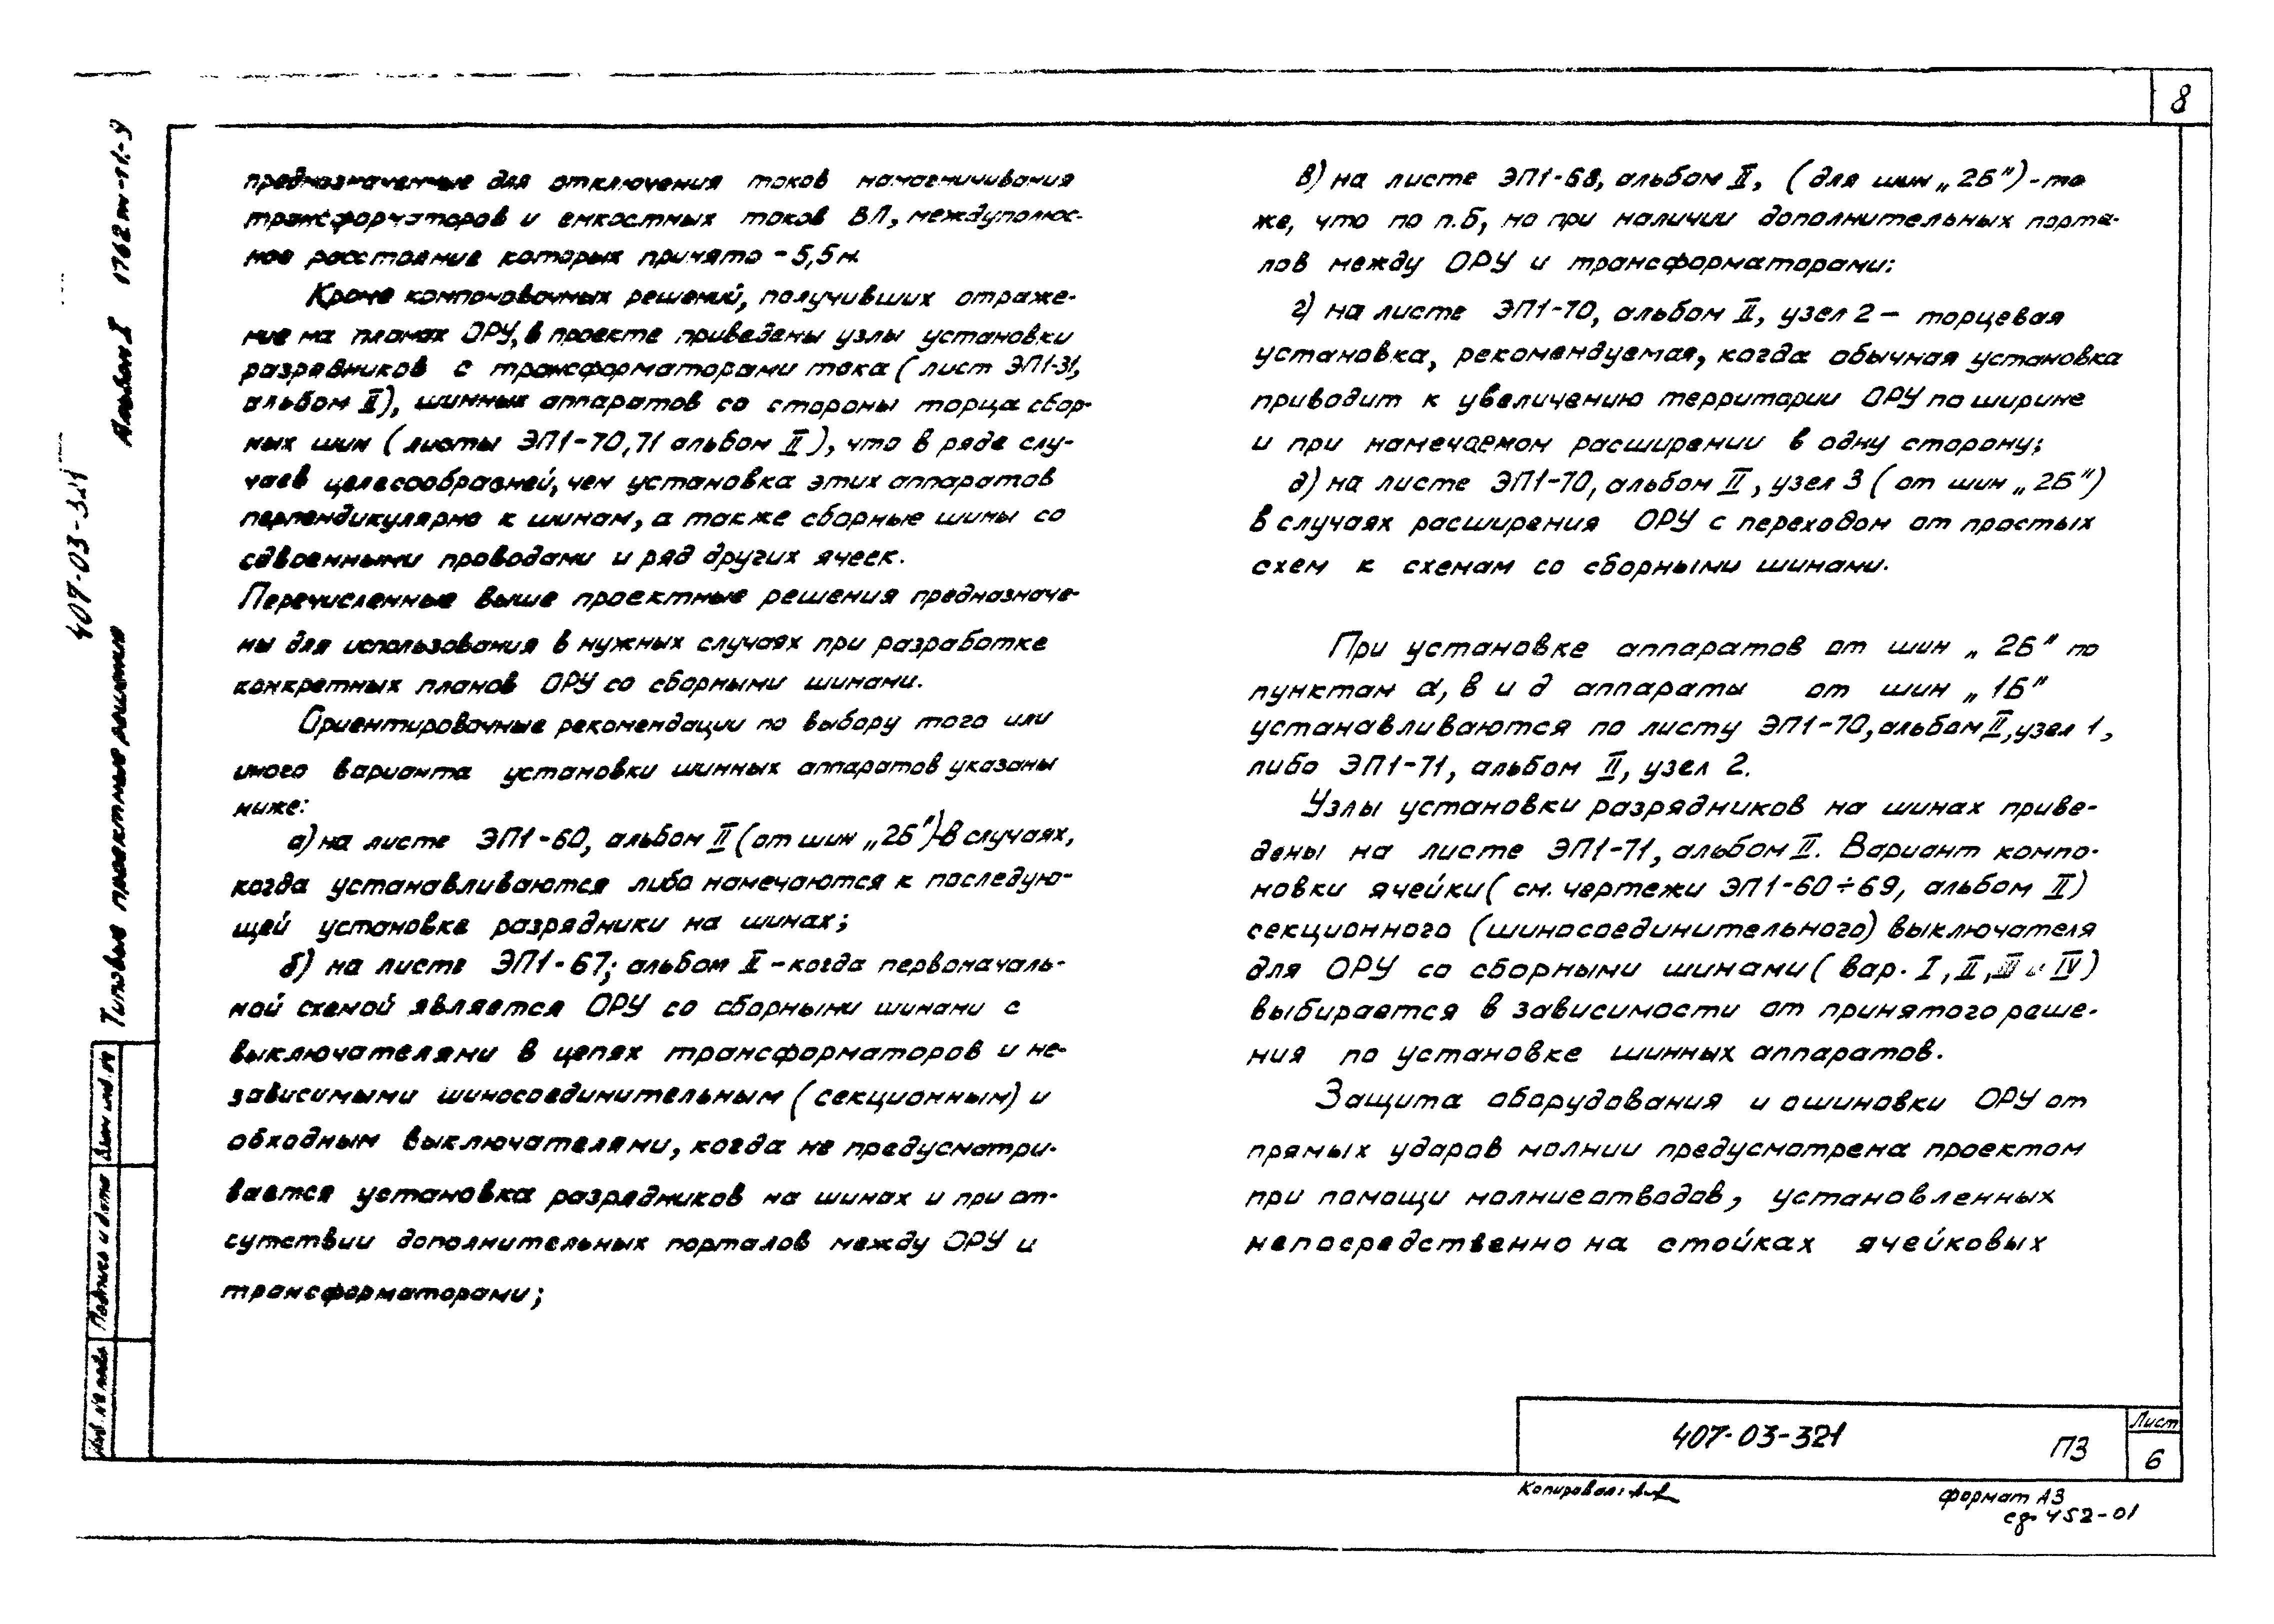 8
предназначенные для отключения токов намагничивания
трансформаторов и емкостных токов ВЛ, междуполюс-
ное расстояние которых принято - 5,5м.
Кроме компоновочных решений, получивших отраже-
ние на планах ОРУ, в проекте приведены узлы установки
разрядников с трансформаторами тока (лист ЭП1-31,
альбом II), шинных аппаратов со стороны торца сбор-
ных шин (листы ЭП1-70,71 альбом II), что в ряде слу-
чаев целесообразней, чем установка этих аппаратов
перпендикулярно к шинам, а также сборные шины со
сдвоенными проводами и ряд других ячеек.
Перечисленные выше проектные решения предназначе-
ны для использования в нужных случаях при разработке
конкретных планов ОРУ со сборными шинами.
Ориентировочные рекомендации по выбору того или
иного варианта установки шинных аппаратов указаны
ниже:
а) на листе ЭП1-60, альбом II (от шин „2Б")-В случаях,
когда устанавливаются либо намечаются к последую-
щей установке разрядники на шинах;
б) на листе ЭП1-67; альбом II - когда первоначаль-
ной схемой является ОРУ со сборными шинами с
выключателями в цепях трансформаторов и не-
зависимыми шиносоединительным (секционным) и
обходным выключателями, когда не предусматри-
вается установка разрядников на шинах и при от-
сутствии дополнительных порталов между ОРУ и
трансформаторами;
в) на листе ЭП1-68, альбом II, (для шин „2Б") - то
же, что по п.б, но при наличии дополнительных порта-
лов между ОРУ и трансформаторами;
г) на листе ЭП1-70, альбом II, узел 2 — торцевая
установка, рекомендуемая, когда обычная установка
приводит к увеличению территории ОРУ по ширине
и при намечаемом расширении в одну сторону;
д) на листе ЭП1-70, альбом II, узел 3 (от шин „2Б")
в случаях расширения ОРУ с переходом от простых
схем к схемам со сборными шинами.
При установке аппаратов от шин „2Б" по
пунктам а, в и д аппараты от шин „1Б"
устанавливаются по листу ЭП1-70, альбом II, узел 1,
либо ЭП1-71, альбом II, узел 2.
Узлы установки разрядников на шинах приве-
дены на листе ЭП1-71, альбом II. Вариант компо-
новки ячейки (см. чертежи ЭП1-60÷69, альбом II)
секционного (шиносоединительного) выключателя
для ОРУ со сборными шинами (вар. I, II, III и IV)
выбирается в зависимости от принятого реше-
ния по установке шинных аппаратов.
Защита оборудования и ошиновки ОРУ от
прямых ударов молнии предусмотрена проектом
при помощи молниеотводов, установленных
непосредственно на стойках ячейковых
407-03-321 ПЗ
Лист
6
Копировал:
формат А3
сф 452-01
Типовые проектные решения 407-03-321
Альбом I 1762тм-т1-9
Взам инв.№
Подпись и дата
Инв.№ подл